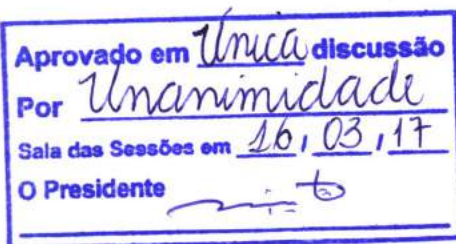 Aprovado em Unica discussão
Por Unanimidade
Sala das Sessões em 16, 03, 17
O Presidente